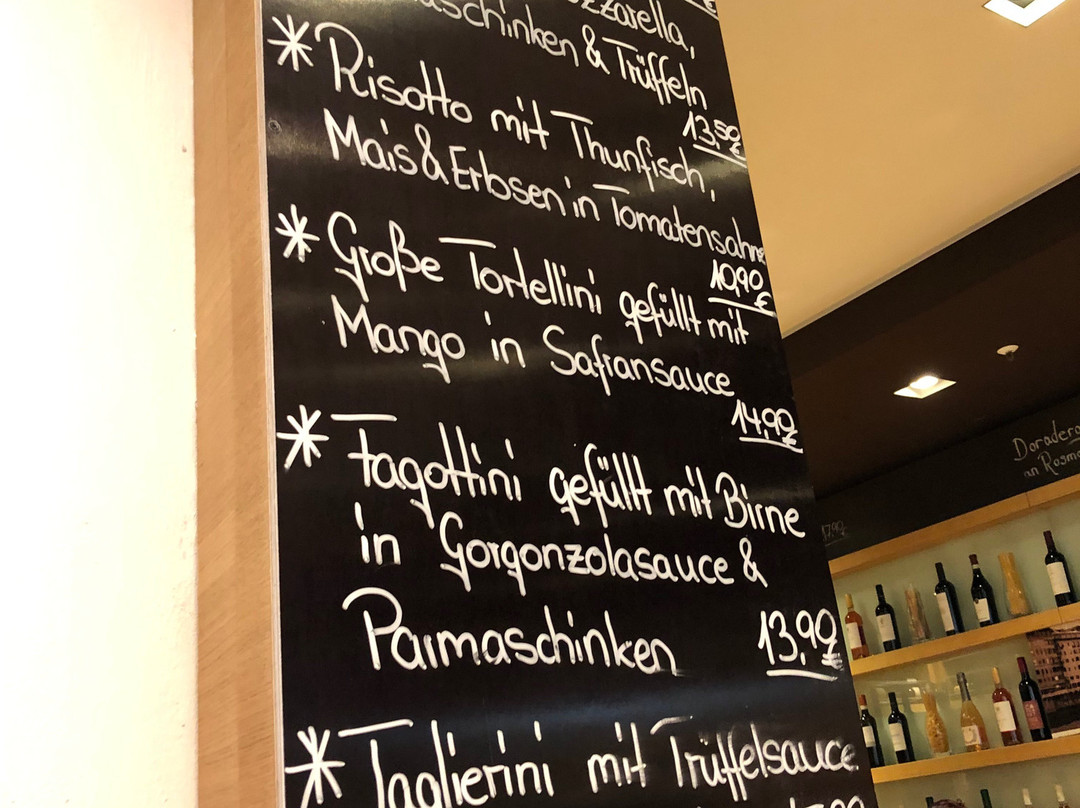 schinken & Trüffeln
13,50 €
* Risotto mit Thunfisch,
Mais & Erbsen in Tomatensahne
10,90 €
* Große Tortellini gefüllt mit
Mango in Safransauce
14,90 €
* Fagottini gefüllt mit Birne
in Gorgonzolasauce &
Parmaschinken 13,90 €
* Taglierini mit Trüffelsauce